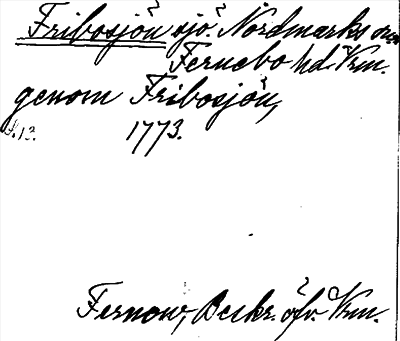 Fribosjön sjö. Nordmarks sn
Fernebo hd. Vrm.
genom Fribosjön,
s. 13. 1773.
Fernow, Beskr. öfv. Vrm.